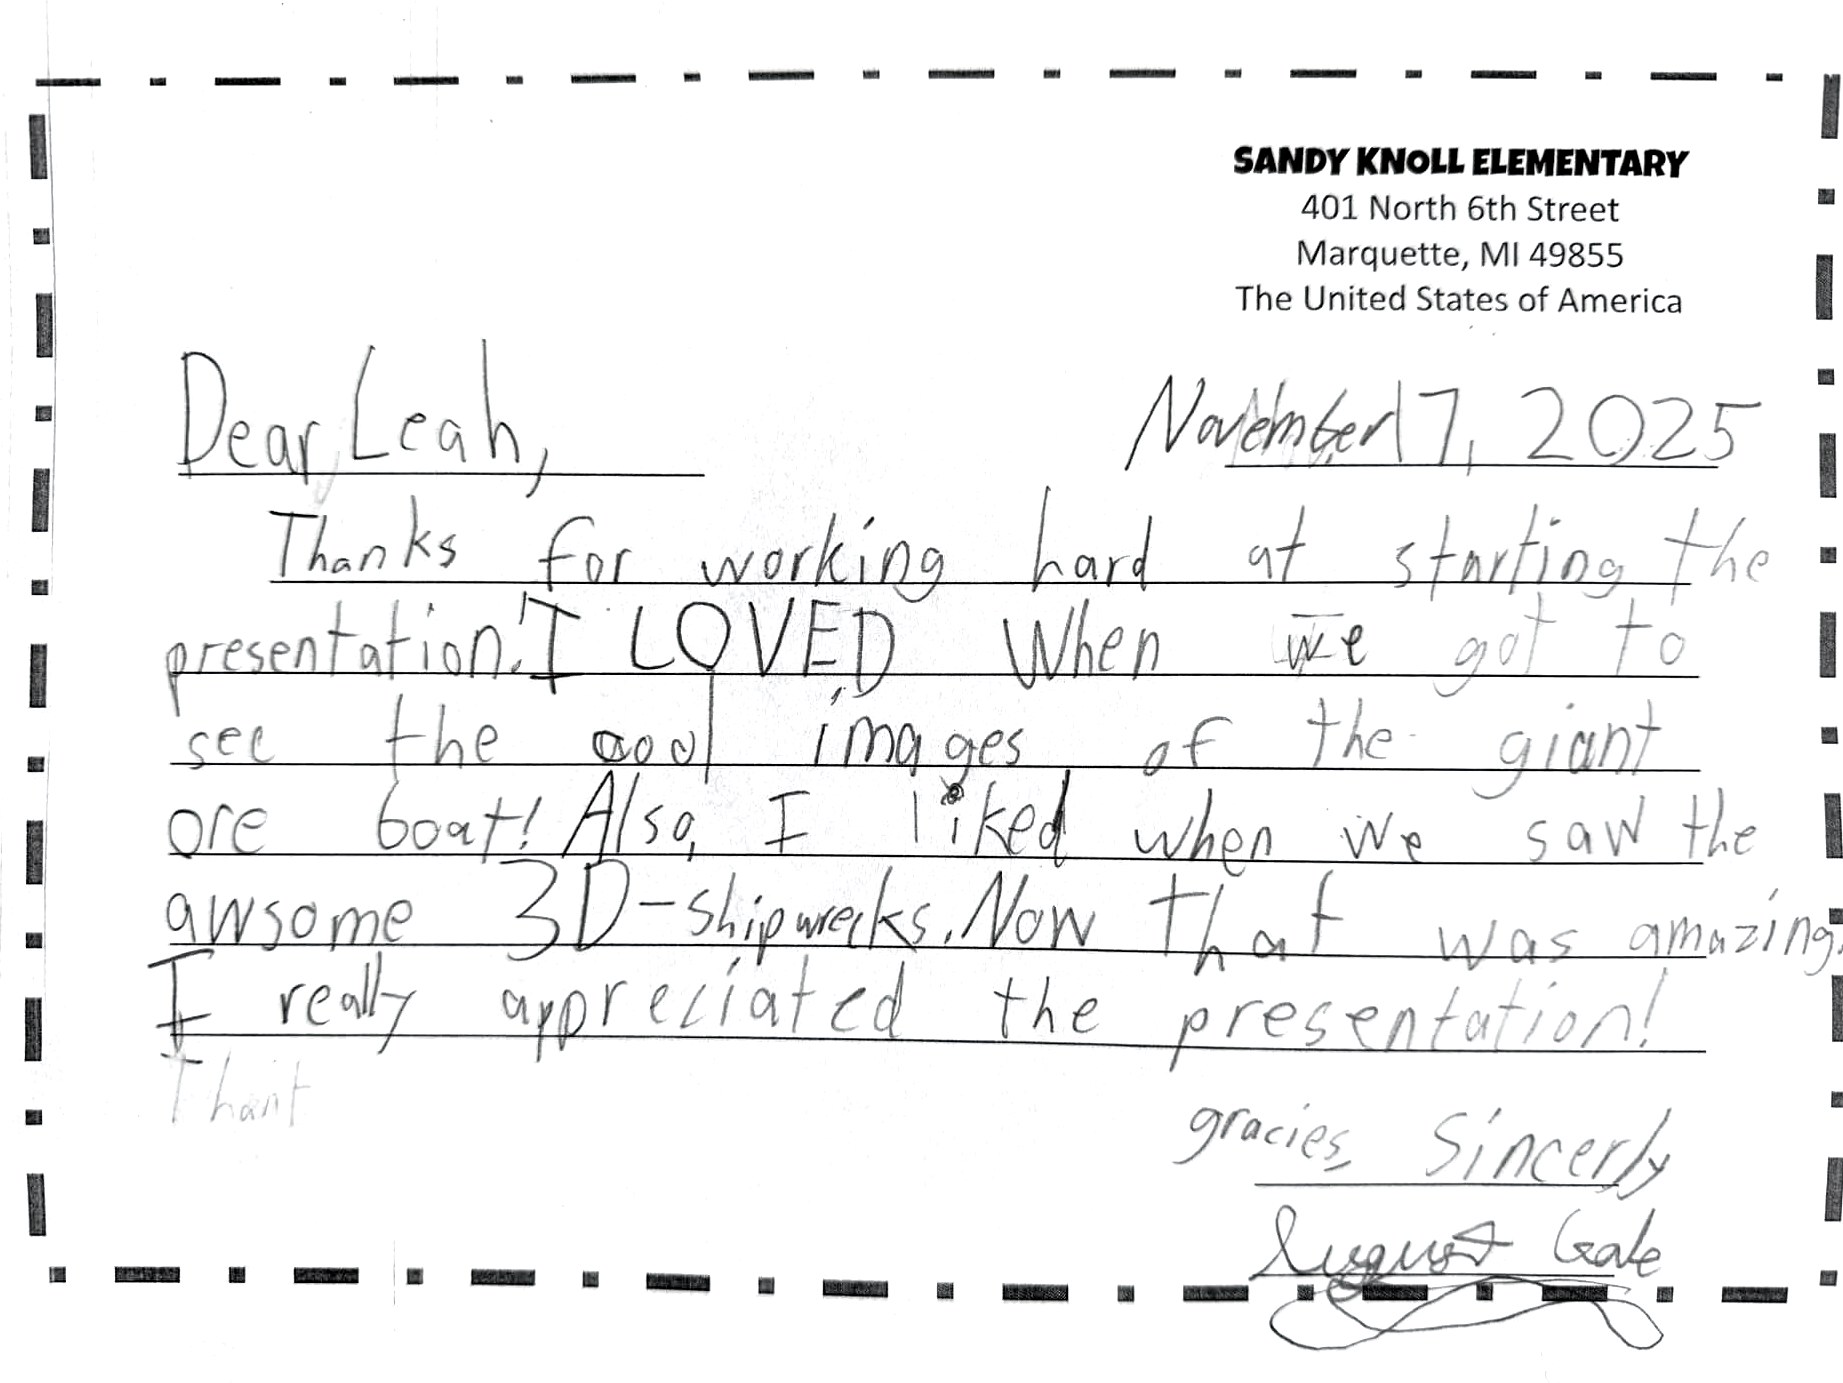 SANDY KNOLL ELEMENTARY
401 North 6th Street
Marquette, MI 49855
The United States of America
Dear Leah,
November 7, 2025
Thanks for working hard at starting the
presentation! I LOVED When we got to
see the cool images of the giant
ore boat! Also, I liked when we saw the
awsome 3D-shipwrecks. Now that was amazing.
I really appreciated the presentation!
gracies, Sincerly
August Gale